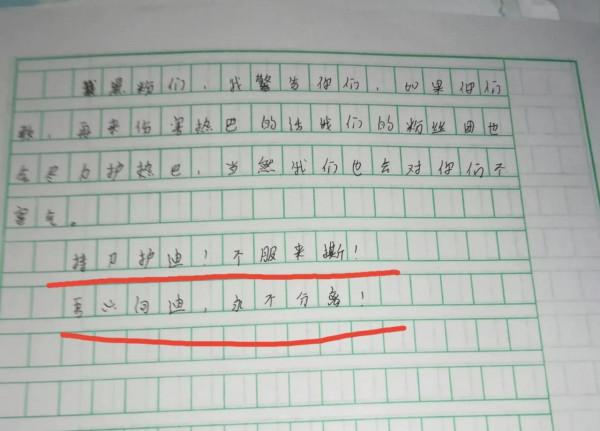 黑粉们，我警告你们，如果你们
敢，再来伤害热巴的话我们的粉丝团也
会尽力护热巴，当然我们也会对你们不
客气。
提刀护迪！不服来撕！
心向迪，永不分离！